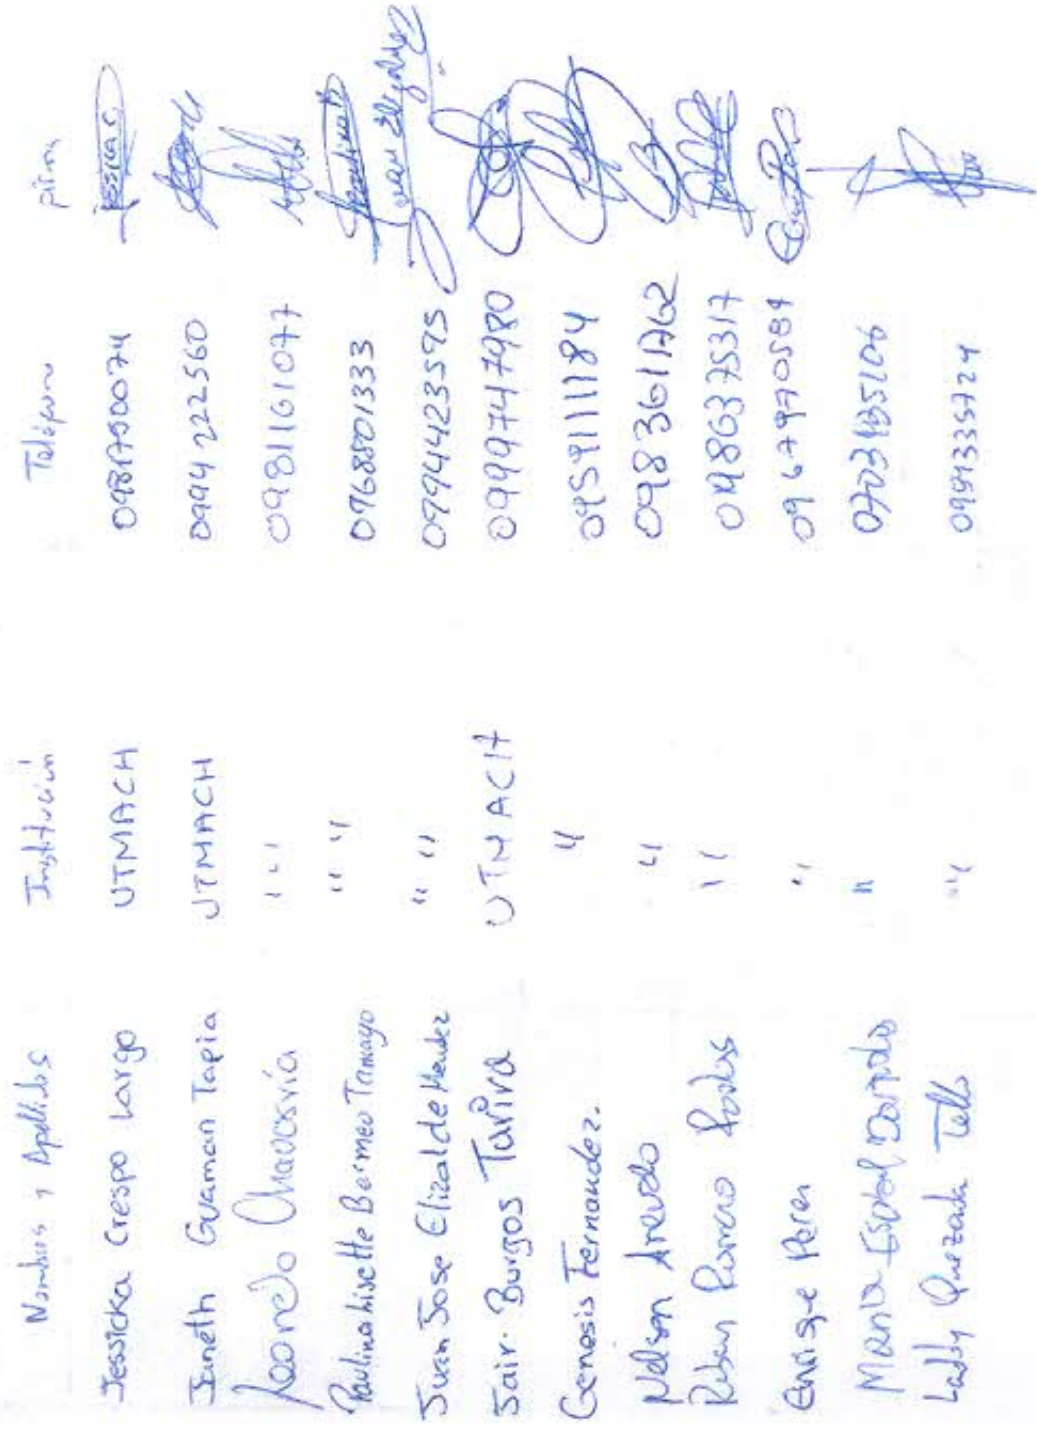 Nombres y Apellidos Institución Teléfono Firma
Jessicka Crespo Largo UTMACH 0981750074 Jessica C.
Janeth Guaman Tapia UTMACH 0994222560
Leonardo Chavarría " " 0981161077
Paulina Lissette Bermeo Tamayo " " 0968501333
Juan Jose Elizalde Mendez " " 0994423595 Juan Elizalde
Jair Burgos UTMACH 0999747980
Genesis Fernandez. " 0959111184
Nelson " 0983611762
Ruben Romero " 0986375317
Enrique Perez "
Maria "
Lady Quezada Tello "